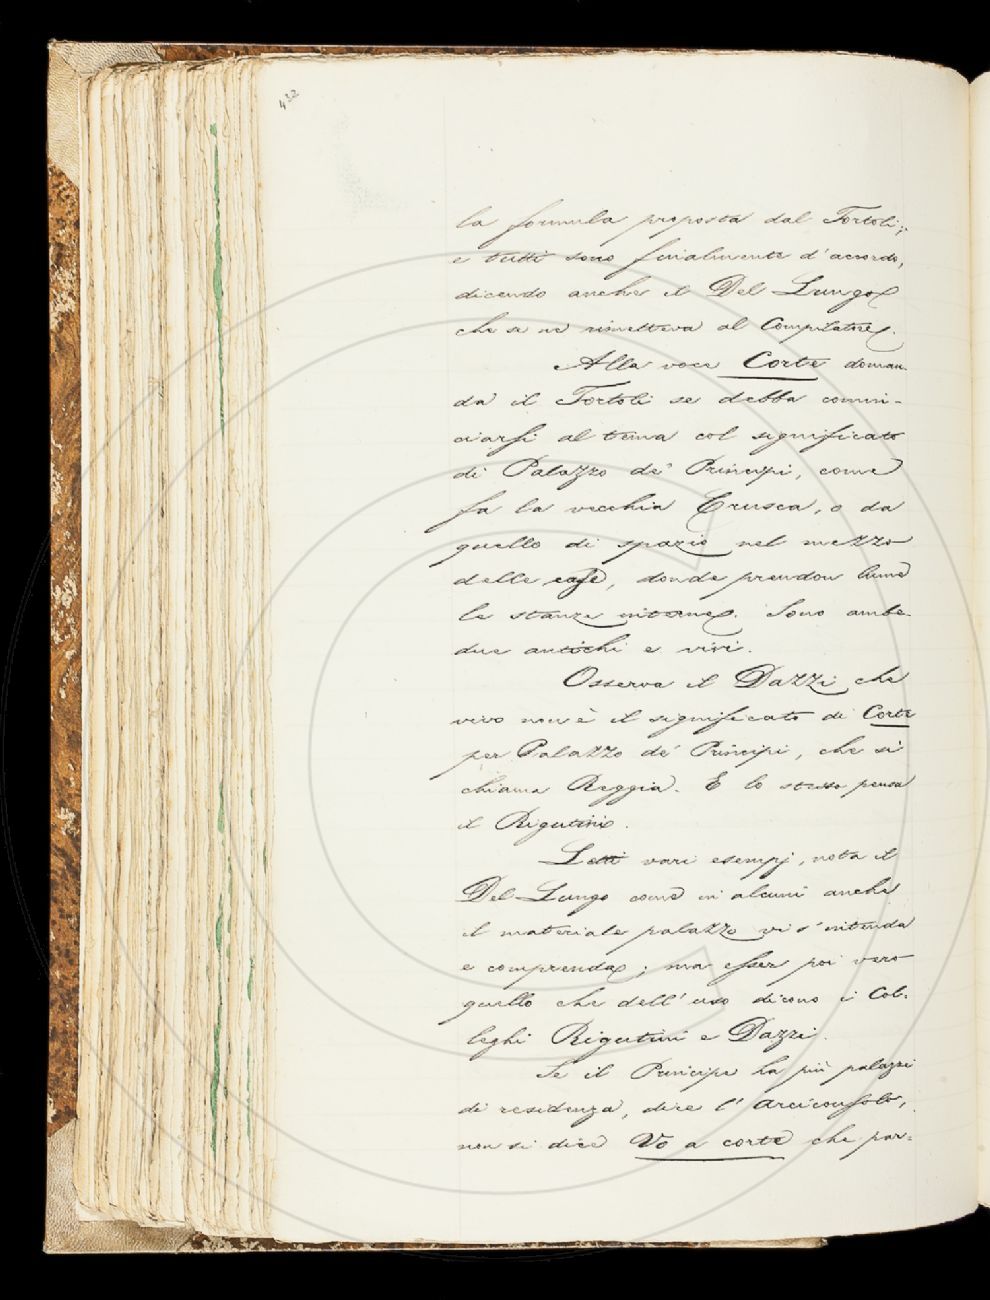 432
la formula proposta dal Tortoli;
e tutti sono finalmente d'accordo,
dicendo anche il Del Lungo
che se ne rimetteva al Compilatore.
Alla voce Corte doman-
da il Tortoli se debba comin-
ciarsi al tema col significato
di Palazzo de' Principi, come
fa la vecchia Crusca, o da
quello di spazio nel mezzo
delle case, donde prendon lume
le stanze interne. Sono ambe-
due antichi e vivi.
Osserva il Dazzi che
vivo non è il significato di Corte
per Palazzo de' Principi, che si
chiama Reggia. E lo stesso pensa
il Rigutini.
Letti vari esempj, nota il
Del Lungo come in alcuni anche
il materiale palazzo vi s'intenda
e comprenda; ma esser poi vero
quello che dell'uso dicono i Col-
leghi Rigutini e Dazzi.
Se il Principe ha più palazzi
di residenza, dice l'Arciconsolo,
non si dice Vo a corte che par-